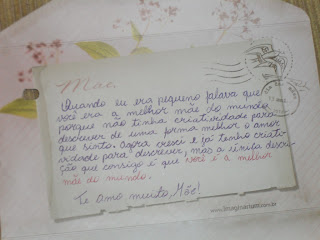 Mãe,
Quando eu era pequeno falava que
você era a melhor mãe do mundo
porque não tinha criatividade para
descrever de uma forma melhor o amor
que sinto. Agora cresci e já tenho criati-
vidade para descrever, mas a única descri-
ção que consigo é que você é a melhor
mãe do mundo.
Te amo muito, Mãe!